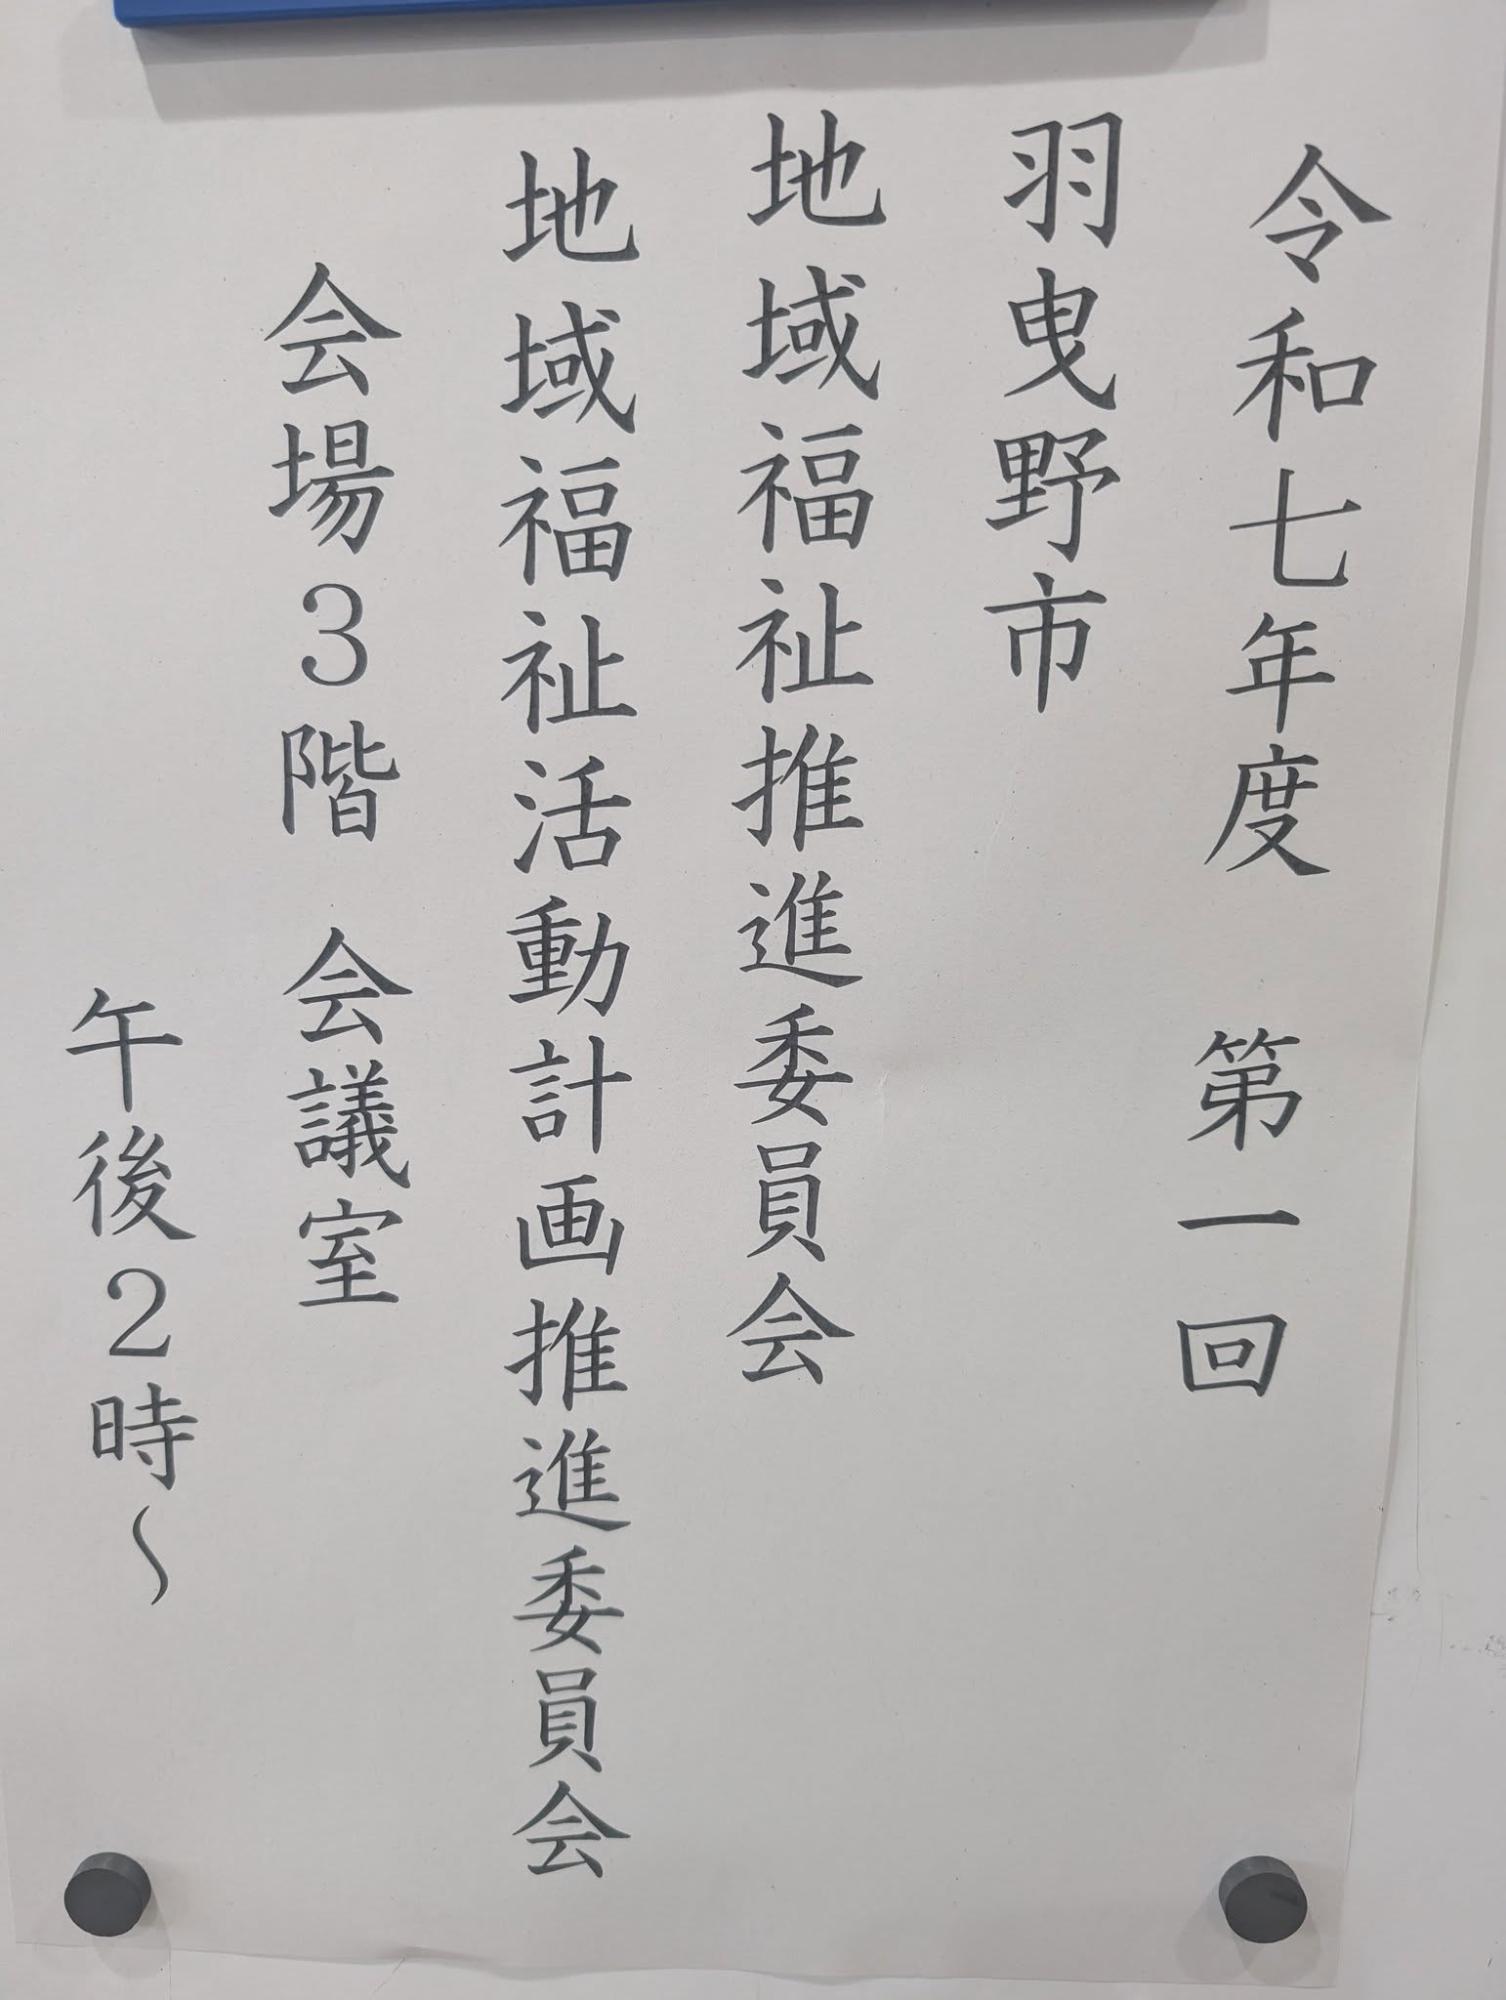 令和七年度　第一回
羽曳野市
地域福祉推進委員会
地域福祉活動計画推進委員会
会場３階　会議室
午後２時～